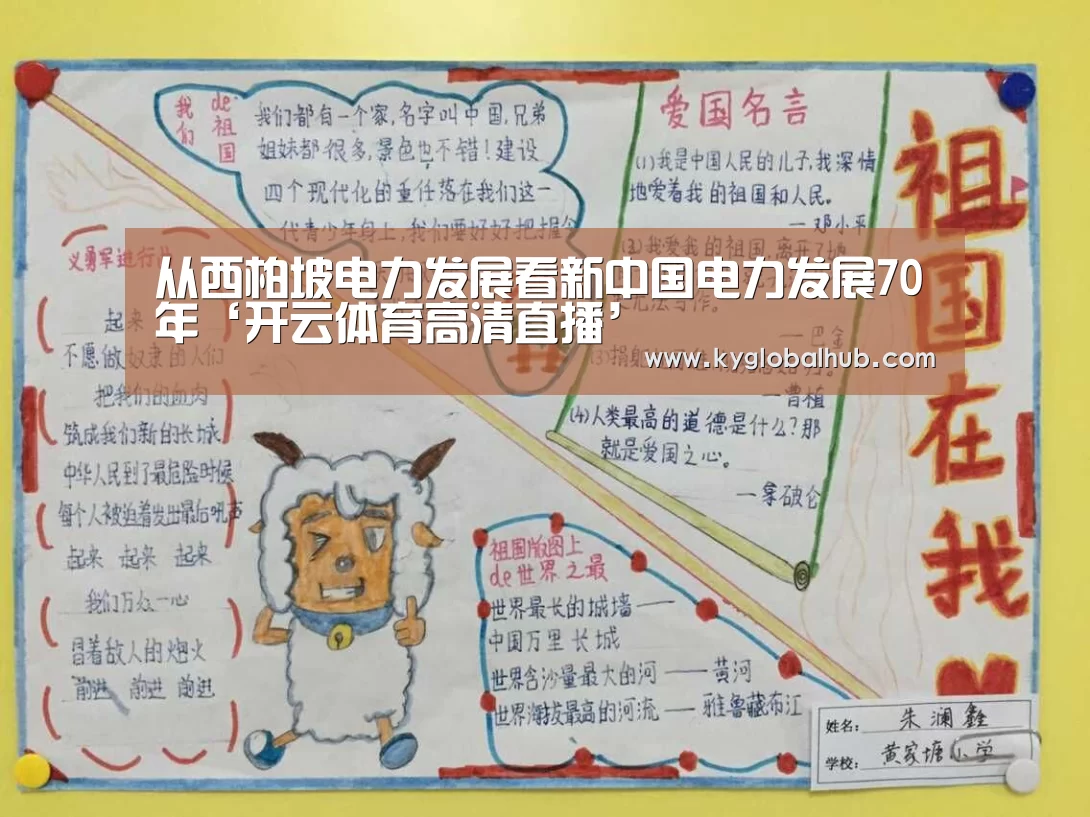 我们
de祖国
我们都有一个家,名字叫中国,兄弟
姐妹都很多,景色也不错!建设
四个现代化的重任落在我们这一
代青少年身上,我们要好好把握今
爱国名言
(1)我是中国人民的儿子,我深情
地爱着我的祖国和人民。
—邓小平
我爱我的祖国,离开了她
无法写作。
—巴金
—曹植
(4)人类最高的道德是什么?那
就是爱国之心。
—拿破仑
祖国在我
从西柏坡电力发展看新中国电力发展70
年‘开云体育高清直播’
www.kyglobalhub.com
义勇军进行曲
起来
不愿做奴隶的人们
把我们的血肉
筑成我们新的长城
中华人民到了最危险时候
每个人被迫着发出最后吼声
起来 起来 起来
我们万众一心
冒着敌人的炮火
前进 前进 前进
祖国版图上
de世界之最
世界最长的城墙——
中国万里长城
世界含沙量最大的河——黄河
世界海拔最高的河流——雅鲁藏布江
姓名:朱澜鑫
学校:黄家塘小学